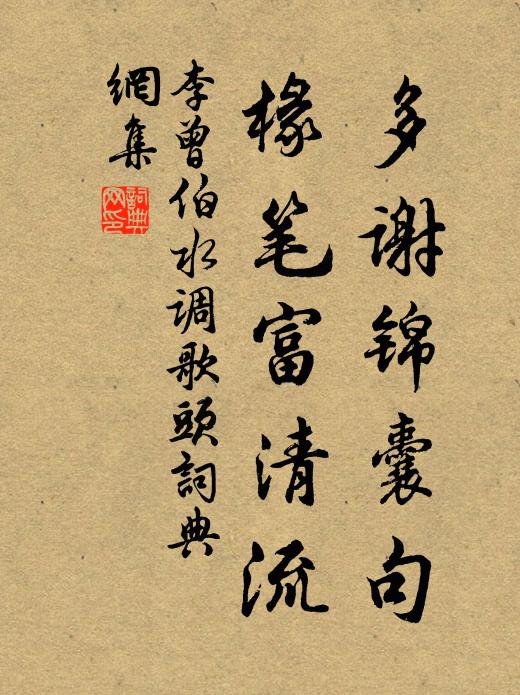 多谢锦囊句
椽笔富清流
李曾伯水调歌頭詞典
網集
詞典
网印